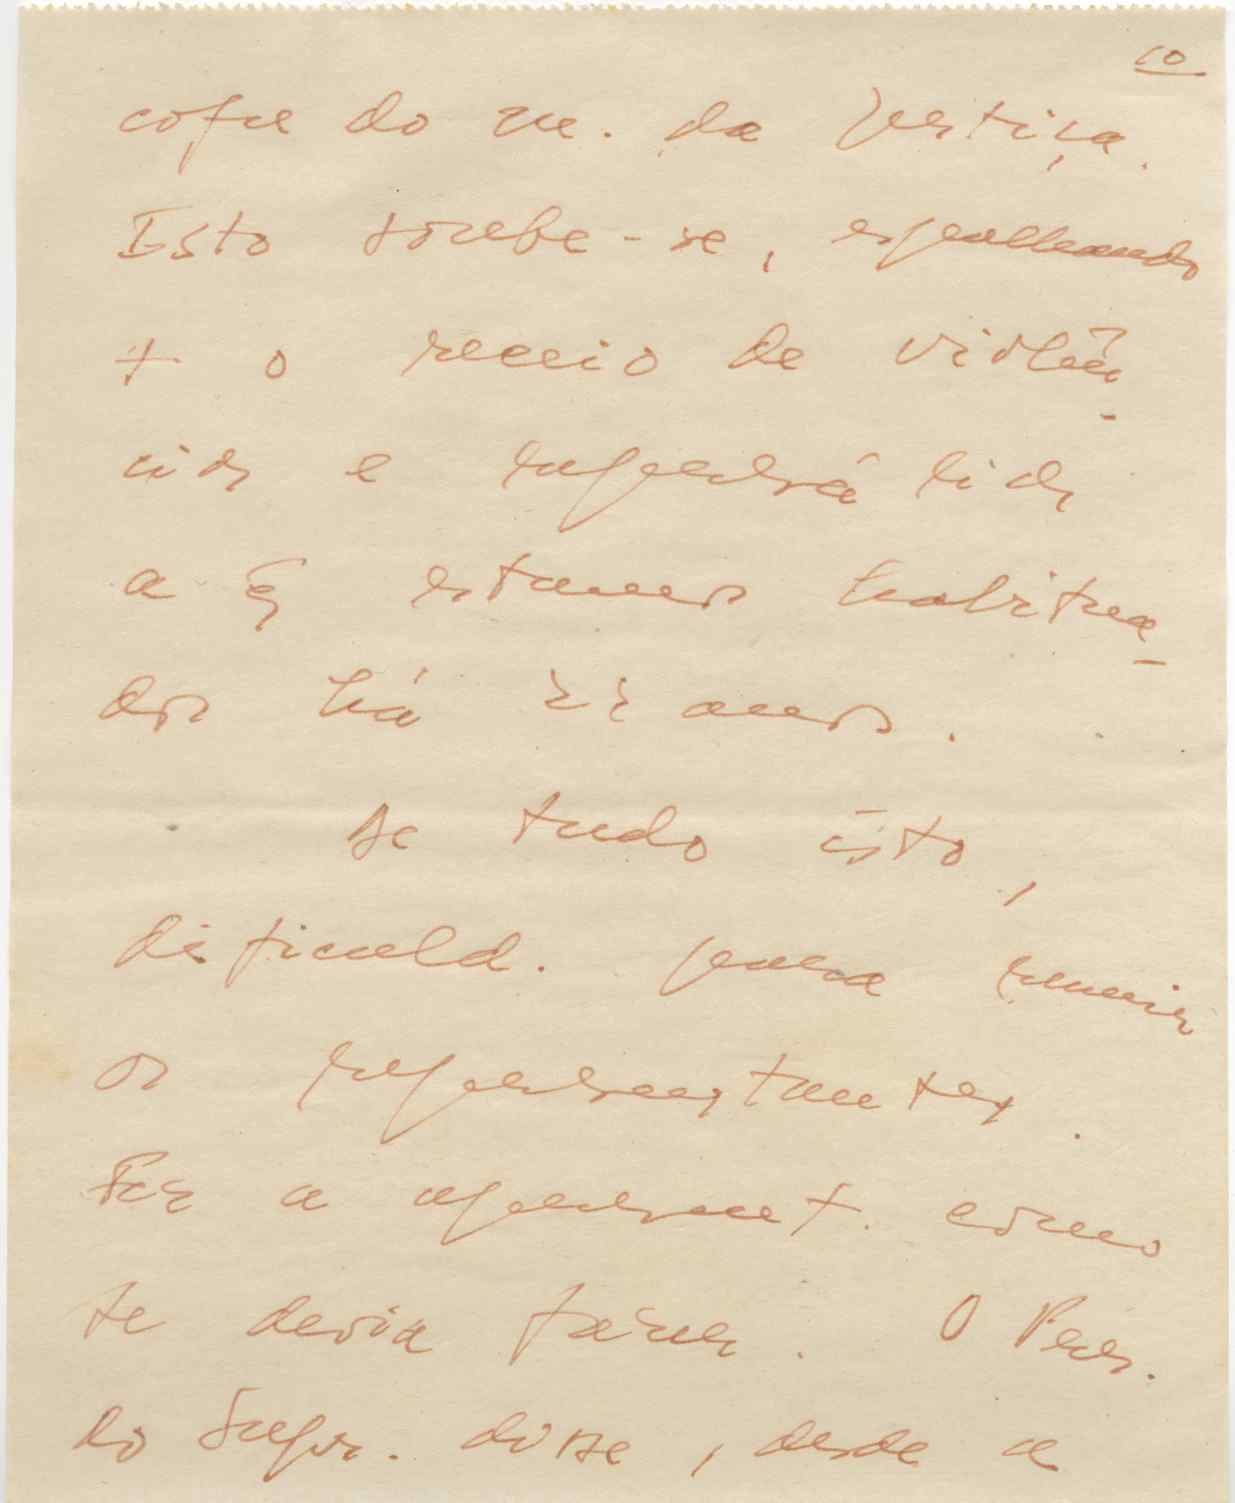 10
cofre do m. da Justiça.
Isto soube-se, espalhando
+ o receio de violên-
cias e represálias
a q̃ estamos habitua-
dos há 22 anos.
De tudo isto,
dificuld. para reunir
os representantes.
Fez a represent. como
se devia fazer. O Pres.
do Supr. disse, desde a